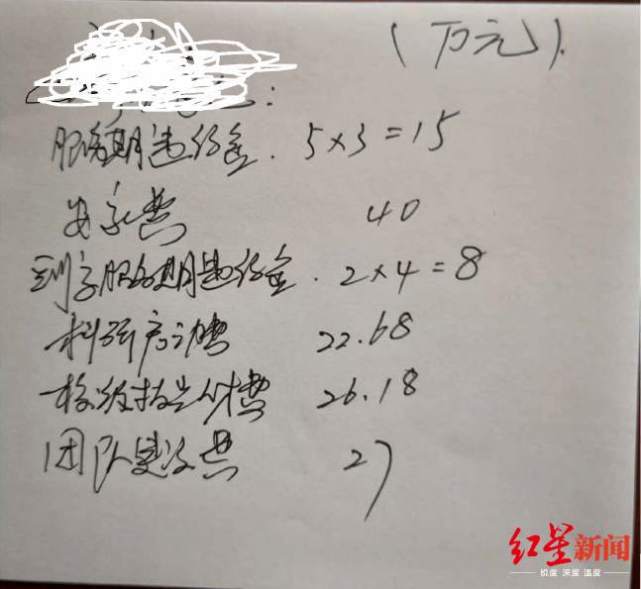 (万元).
:
服务期违约金. 5×3=15
安家费 40
到岗服务期违约金. 2×4=8
科研启动费 22.68
校级指标人才费 26.18
团队建设费 27
红星新闻
锐度 深度 温度